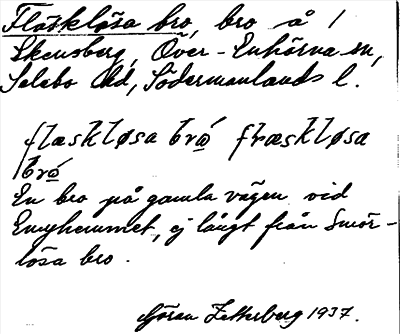 Fläsklösa bro, bro å 1
Skensberg, Över-Enhörna sn,
Selebo hd, Södermanlands l.
flæskløsa bró̲ fræskløsa
bró̲
En bro på gamla vägen vid
Enyhemmet, ej långt från Smör-
lösa bro.
Göran Zetterberg 1937.